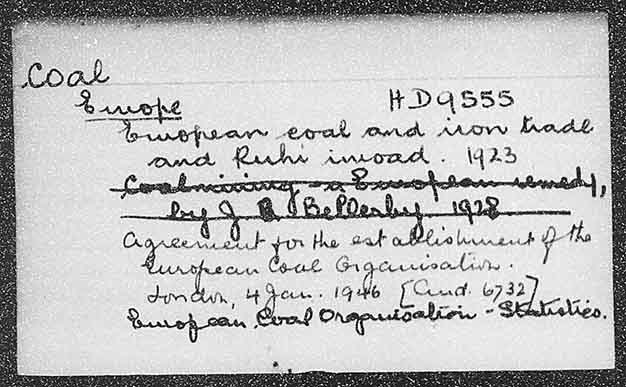 Coal
Europe HD9555
European coal and iron trade
and Ruhr inroad. 1923
Coalmining - a European remedy,
by J R Bellerby 1928
Agreement for the establishment of the
European Coal Organisation.
London, 4 Jan. 1946 [Cmd. 6732]
European Coal Organisation - Statistics.